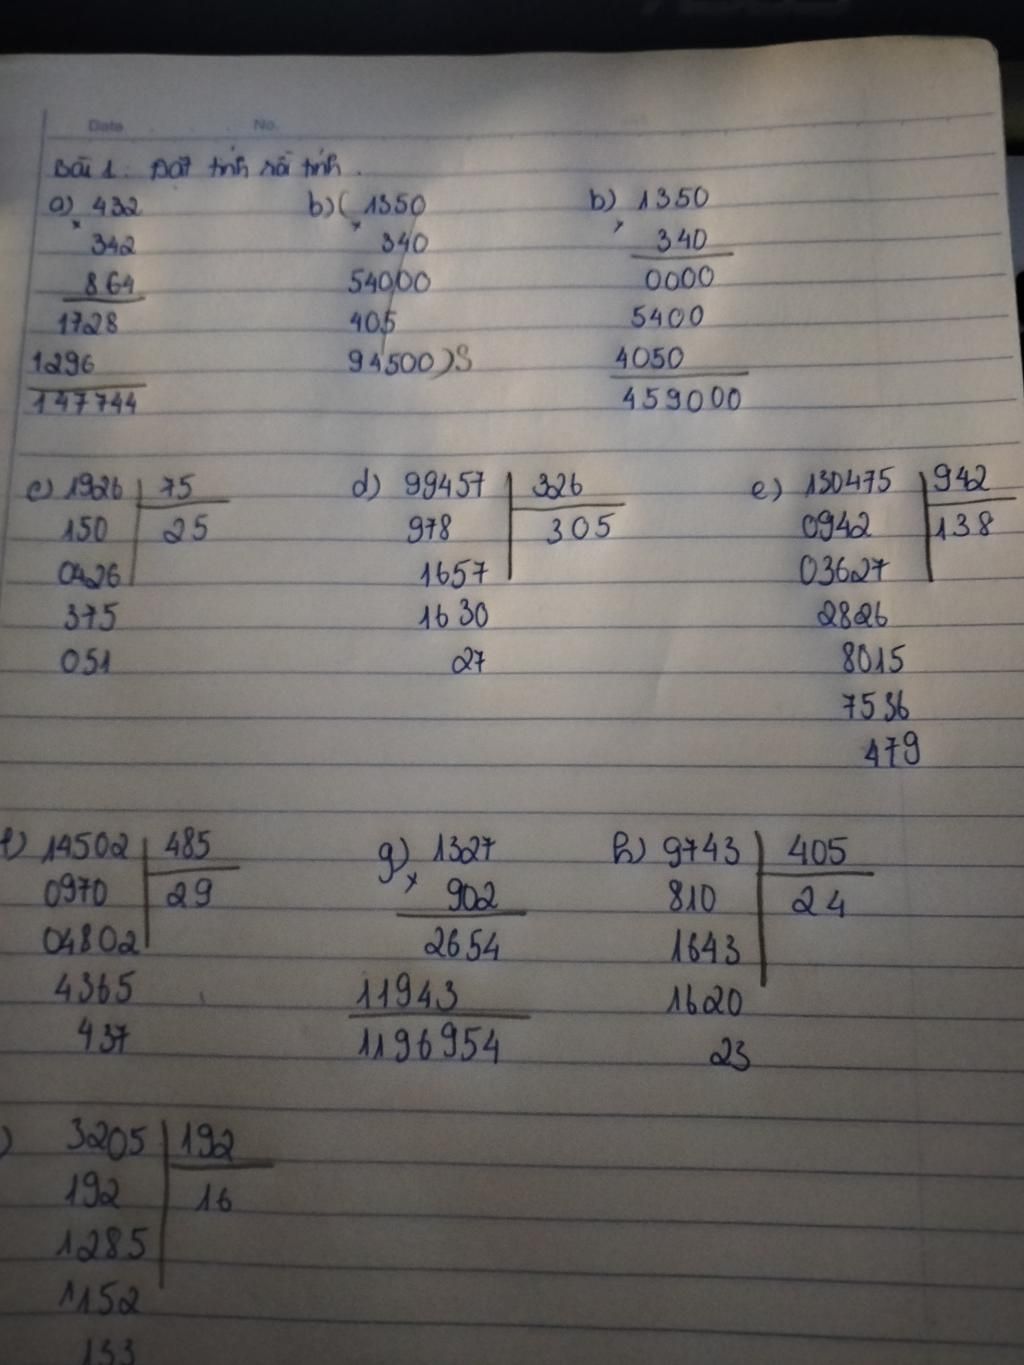 Date No.
Bài 1: Đặt tính rồi tính.
a) 432 b) ( 1350 b) 1350
× 342 × 340 × 340
864 54000 0000
1728 405 5400
1296 94500 ) S 4050
147744 459000
c) 1926 75 d) 99457 326 e) 130475 942
150 25 978 305 0942 138
0426 1657 03627
375 1630 2826
051 27 8015
7536
479
f) 14502 485 g) 1327 h) 9743 405
0970 29 × 902 810 24
04802 2654 1643
4365 11943 1620
437 1196954 23
) 3205 192
192 16
1285
1152
133